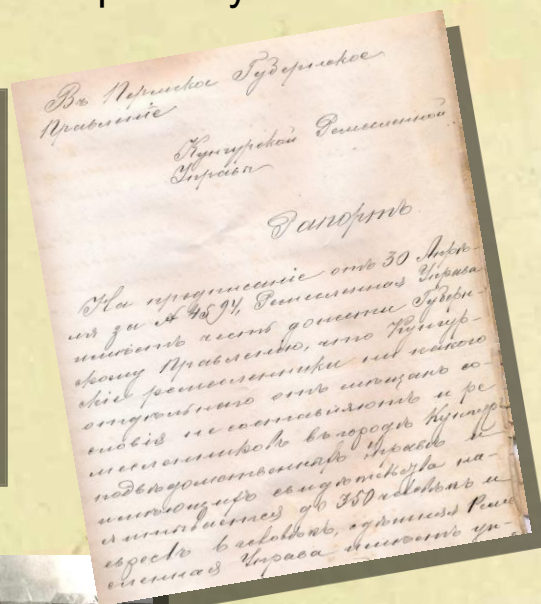 Въ Пермское Губернское
Правленіе
Кунгурской Ремесленной
Управы
Рапортъ
На предписаніе отъ 30 Апре-
ля за № 4594, Ремесленная Управа
имѣетъ честь донести Губерн-
скому Правленію, что Кунгур-
скіе ремесленники ни какого
отдѣльнаго отъ мѣщанъ со-
словія не составляютъ и ре
месленниковъ въ городѣ Кунгурѣ
подвѣдомственныхъ Управѣ и
имѣющихъ свидѣтельства на-
считывается до 350 человѣкъ и
евреевъ 6 человѣкъ, здѣшняя Реме
сленная Управа имѣетъ